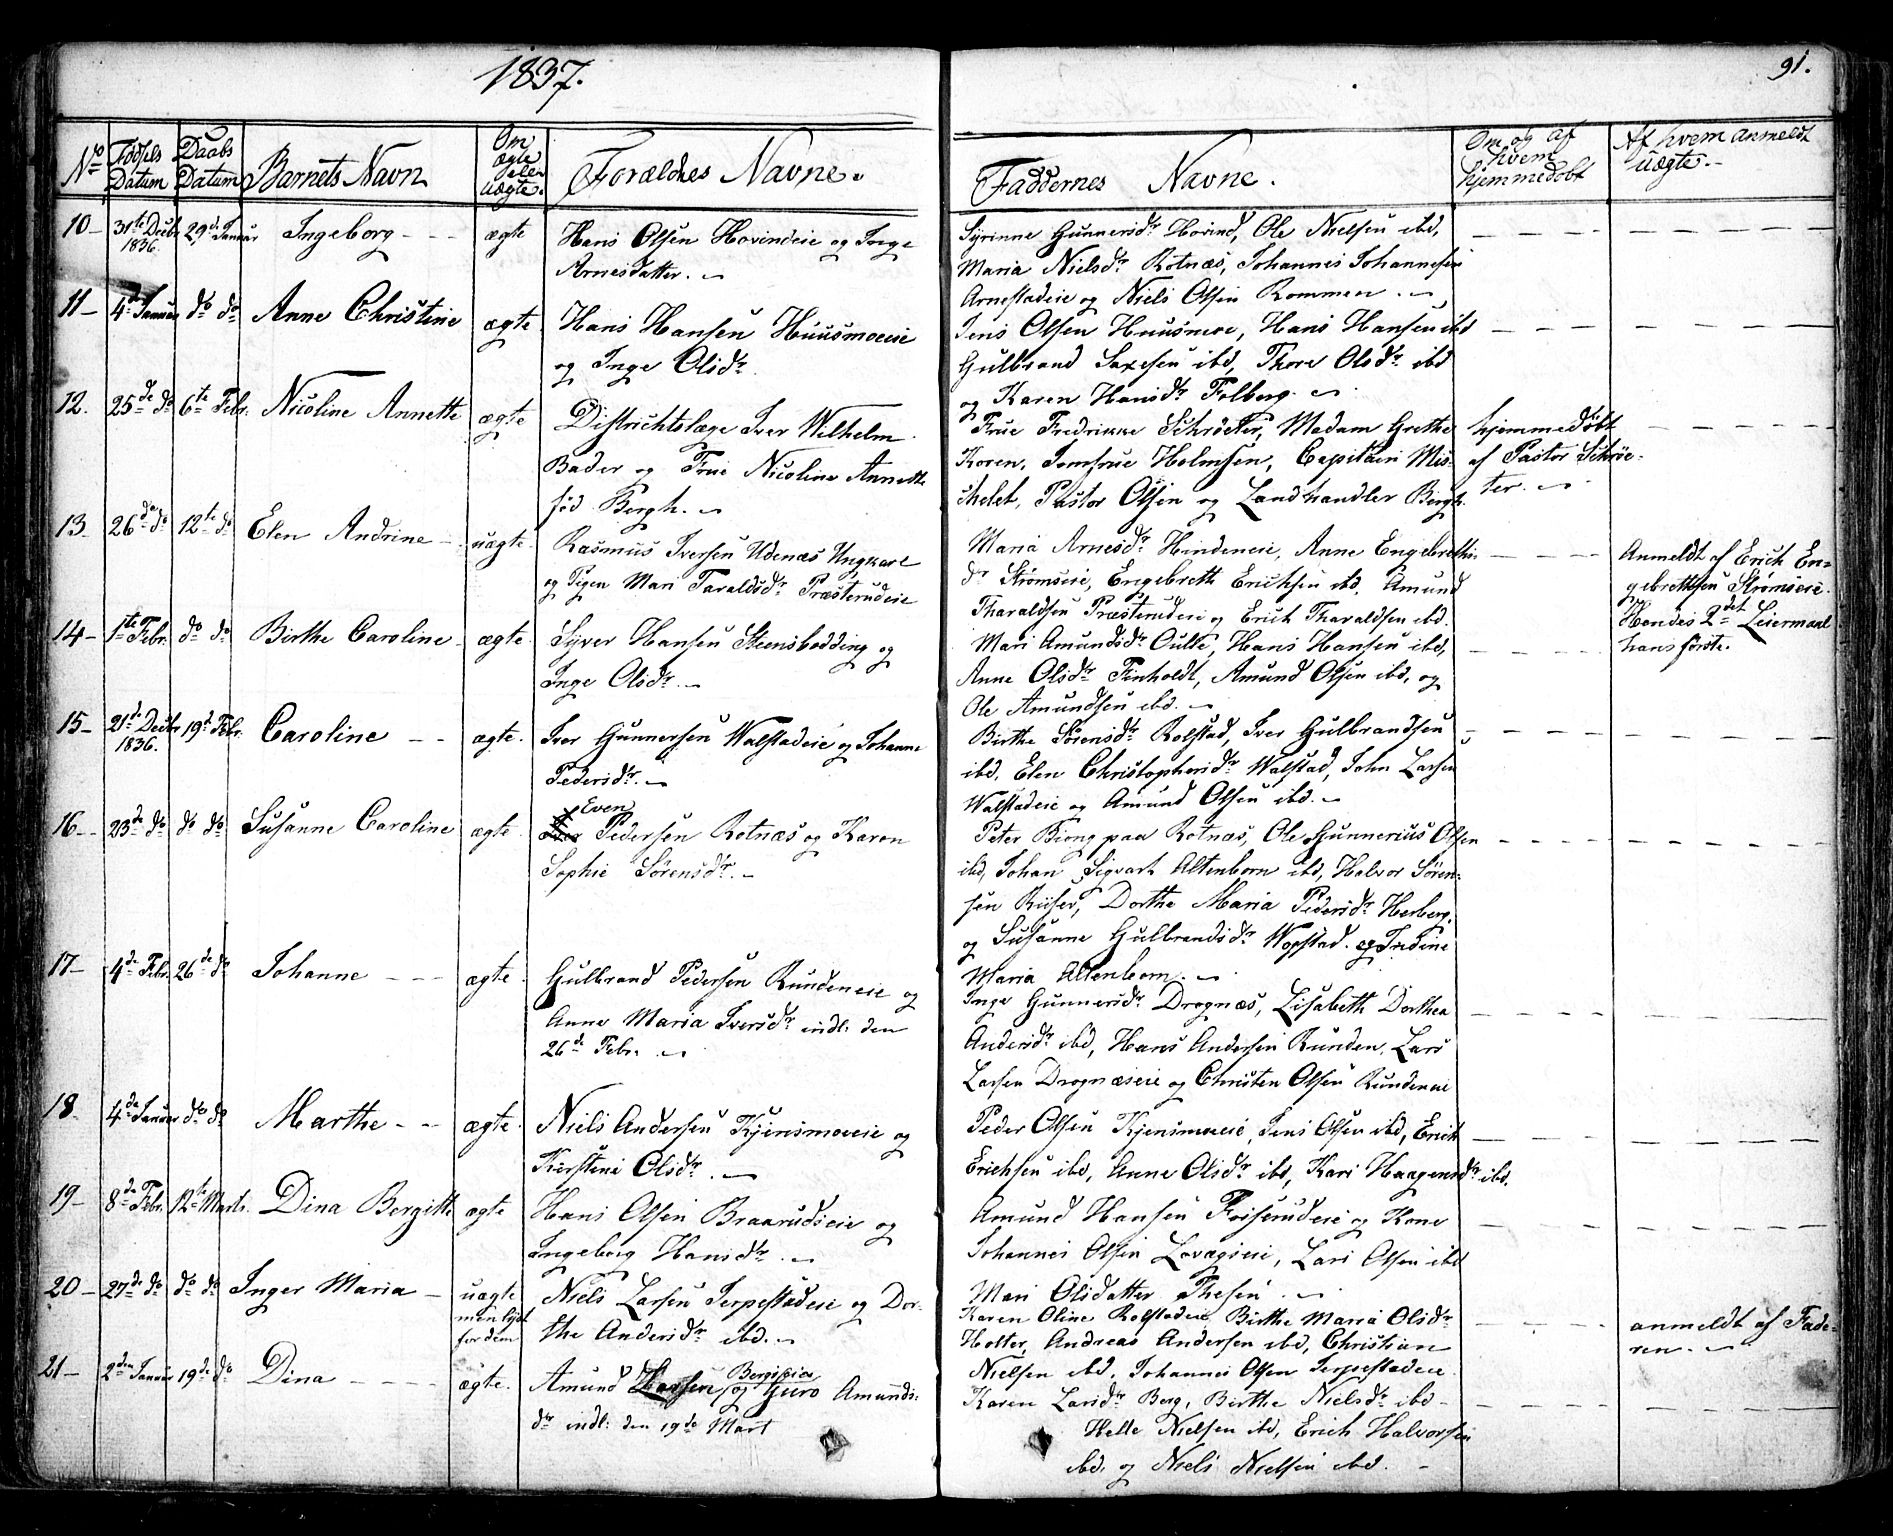 1837.
91.
No Fødsels Datum Daabs Datum Barnets Navn Om ægte eller uægte. Forældres Navne.
Faddernes Navne. Om og af hvem hjemmedøbt Af hvem anmeldt uægte.
10 31te Decbr 1836. 29de Januar Ingeborg ægte
Hans Olsen Hovindeie og Inge
Arnesdatter.
Syrinne Gunnersdr Hovind, Ole Nielsen ibd,
Maria Nielsdr Rotnæs, Johannes Johannesen
Arnestadeie og Niels Olsen Rommen.
11 4de Januar do do Anne Christine ægte
Hans Hansen Huusmoeeie
og Inge Olsdr.
Jens Olsen Huusmoe, Hans Hansen ibd
Gulbrand Saxesen ibd, Thore Olsdr ibd
og Karen Hansdr Folberg.
12. 25de do 6te Febr. Nicoline Annette ægte
Districhtslæge Iver Wilhelm
Bader og Frue Nicoline Annette
fød Bergh.
Frue Fredrikke Schrøeter, Madam Grethe
Koren, Jomfrue Holmsen, Capitain Mis-
chelet, Pastor Olsen og Landhandler Bergh.
hjemmedøbt
af Pastor Schrøe-
ter.
13. 26de do 12te do Elen Andrine uægte
Rasmus Iversen Udenæs Ungkarl
og Pigen Mari Taraldsdr Præsterudeie
Maria Arnesdr Hindeneie, Anne Engebreths-
dr Strømseie, Engebreth Erichsen ibd, Amund
Tharaldsen Præsterudeie og Erich Tharaldsen ibd.
Anmeldt af Erich En-
gebrethsen Strømseie.
Hendes 2det Leiermaal
hans første.
14 1te Febr. do do Birthe Caroline ægte
Syver Hansen Steensbødding og
Inge Olsdr.
Mari Amundsdr Oulie, Hans Hansen ibd,
Anne Olsdr Finholdt, Amund Olsen ibd, og
Ole Amundsen ibd.
15 21de Decbr 1836. 19de Febr. Caroline ægte.
Iver Gunnersen Walstadeie og Johanne
Pedersdr.
Birthe Sørensdr Rolstad, Iver Gulbrandsen
ibd, Elen Christophersdr Walstad, John Larsen
Walstadeie og Amund Olsen ibd.
16 23de do do do Susanne Caroline ægte
Even
Pedersen Rotnæs og Karen
Sophie Sørensdr.
Peter Biong paa Rotnæs, Ole Gunnerius Olsen
ibd, Johan Sigvart Altenborn ibd, Halvor Søren-
sen Riiser, Dorthe Maria Pedersdr Herberg,
og Susanne Gulbrandsdr Wopstad. og Tredine
Maria Altenborn.
17 4de Febr. 26de do Johanne ægte
Gulbrand Pedersen Rundeneie og
Anne Maria Iversdr indl: den
26de Febr.
Inge Gunnersdr Drognæs, Lisabeth Dorthea
Andersdr ibd, Hans Andersen Runden, Lars
Larsen Drognæseie og Christen Olsen Rundeneie
18. 4de Januar do do Marthe ægte
Niels Andersen Kjensmoeeie og
Kirstine Olsdr.
Peder Olsen Kjensmoeeie, Jens Olsen ibd, Erich
Erichsen ibd, Anne Olsdr ibd, Kari Haagensdr ibd.
19 8de Febr. 12te Marts. Dina Bergitte ægte
Hans Olsen Braarudseie og
Ingeborg Hansdr.
Amund Hansen Foiserudeie og Kone
Johannes Olsen Lovægseie, Lars Olsen ibd
Mari Olsdatter Thesen.
20 27de do do do Inger Maria uægte men lyst for dem
Niels Larsen Jerpestadeie og Dor-
the Andersdr ibd.
Karen Oline Rolstadeie, Birthe Maria Olsdr
Holter, Andreas Andersen ibd, Christian
Nielsen ibd, Johannes Olsen Jerpestadeie
anmeldt af Fade-
ren.
21 2den Januar 19de do Dina ægte.
Amund Larsen og Guro Amunds-
dr indl: den 19de Mart
Karen Larsdr Berg, Birthe Nielsdr ibd
Helle Nielsen ibd, Erich Halvorsen
ibd. og Niels Nielsen ibd.